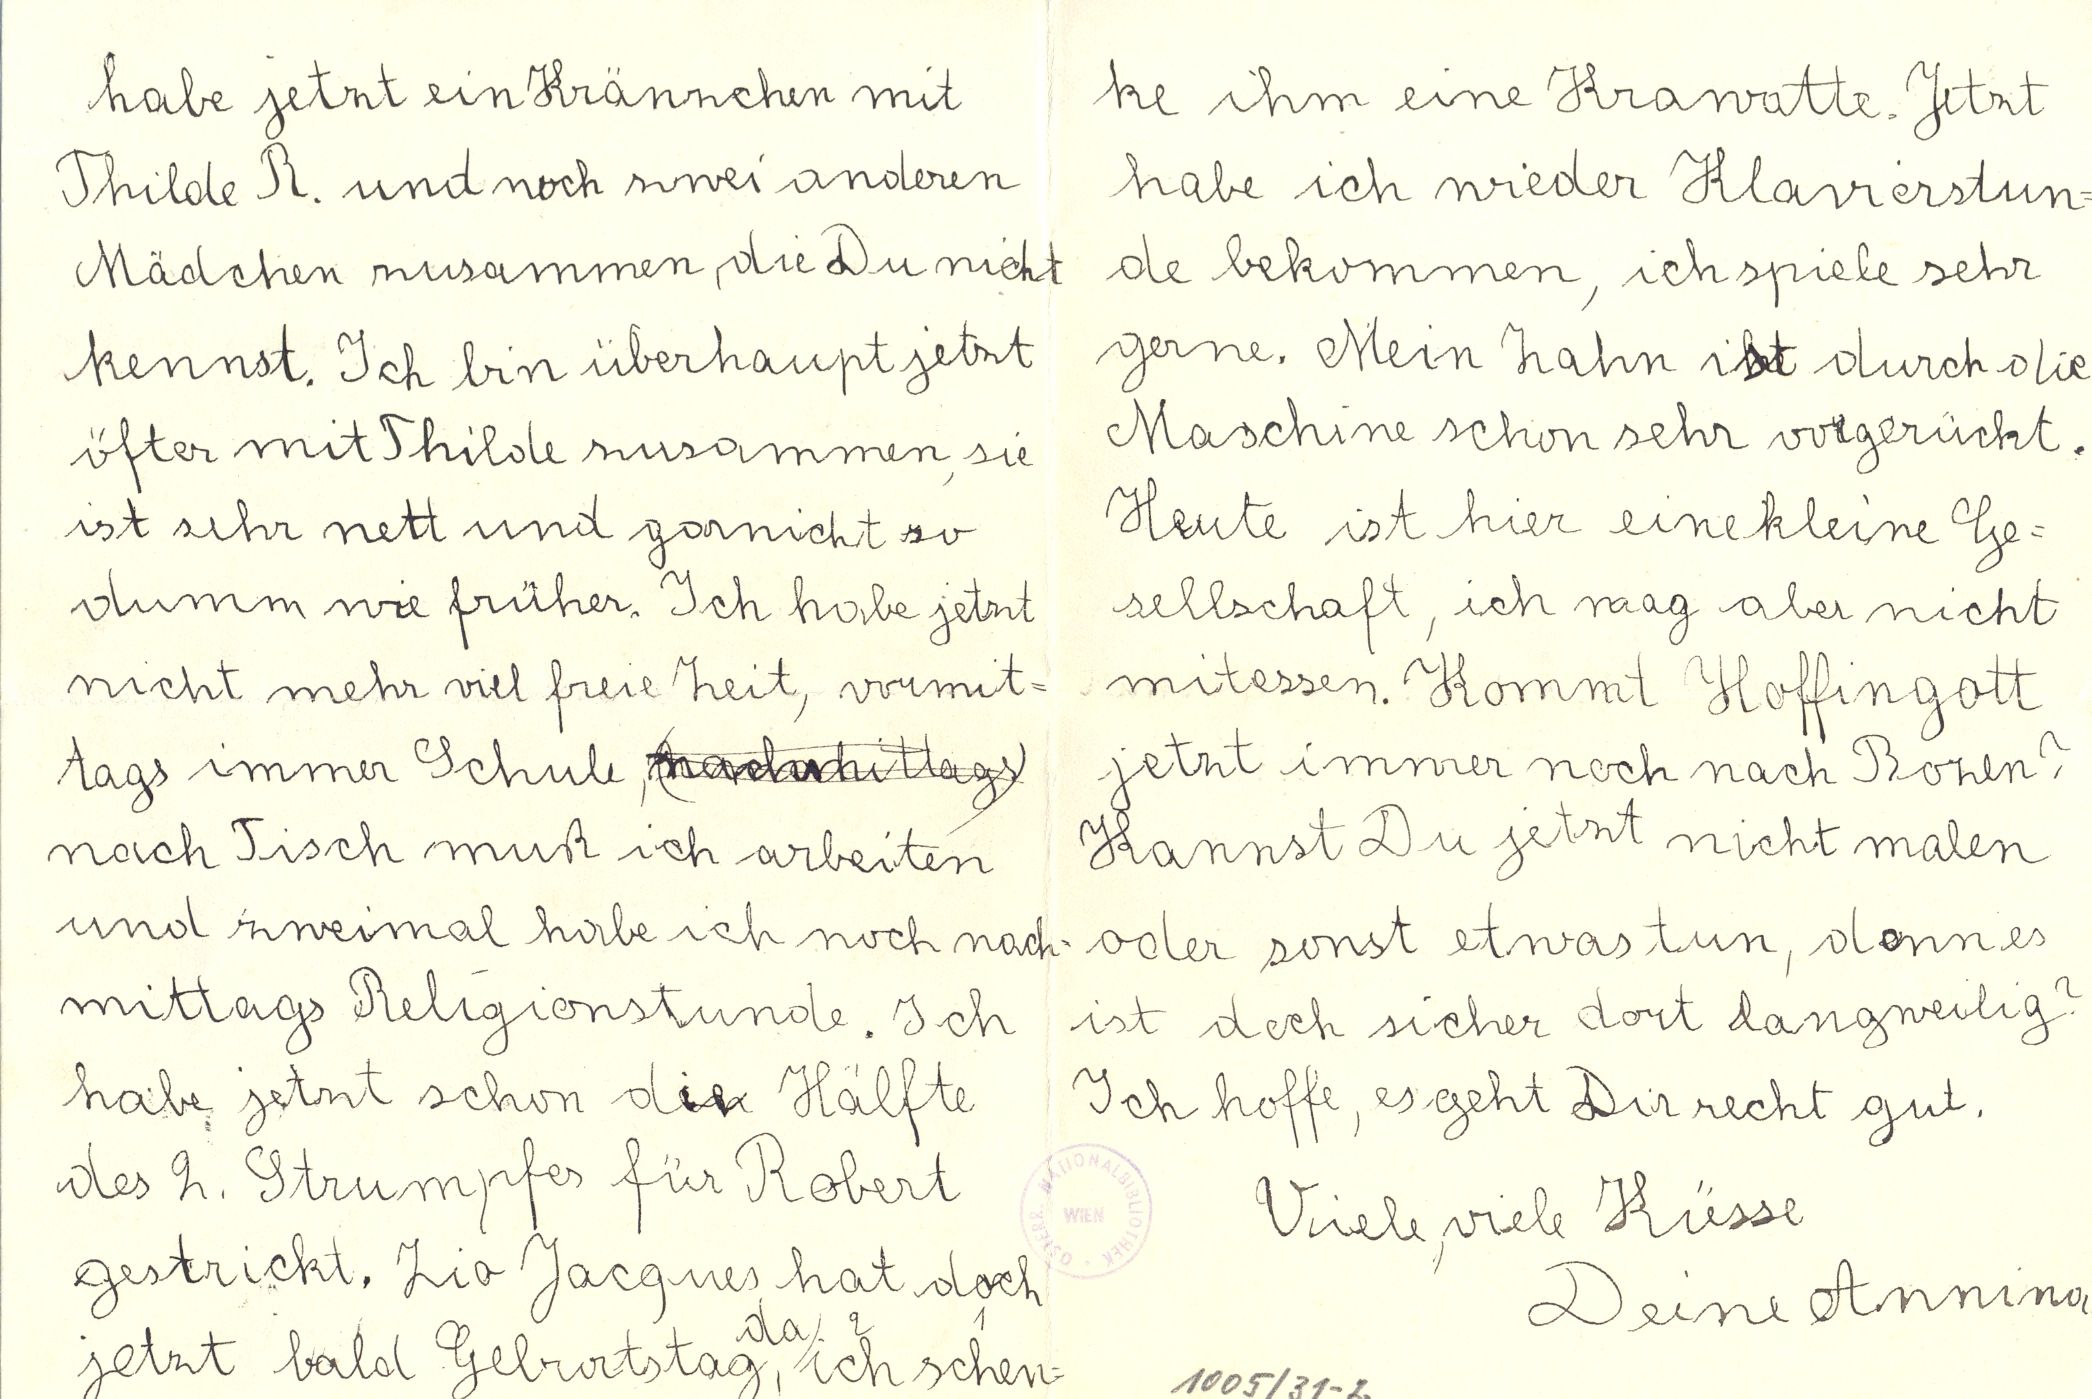 habe jetzt ein Kränzchen mit
Thilde R. und noch zwei anderen
Mädchen zusammen, die Du nicht
kennst. Ich bin überhaupt jetzt
öfter mit Thilde zusammen, sie
ist sehr nett und garnicht so
dumm wie früher. Ich habe jetzt
nicht mehr viel freie Zeit, vormit=
tags immer Schule, (nachmittags)
nach Tisch muß ich arbeiten
und zweimal habe ich noch nach-
mittags Religionstunde. Ich
habe jetzt schon die Hälfte
des 2. Strumpfes für Robert
gestrickt. Zio Jacques hat doch
jetzt bald Geburtstag, da ? ich schen=
ke ihm eine Krawatte. Jetzt
habe ich wieder Klavierstun=
de bekommen, ich spiele sehr
gerne. Mein Zahn ist durch die
Maschine schon sehr vorgerückt.
Heute ist hier eine kleine Ge=
sellschaft, ich mag aber nicht
mitessen. Kommt Hoffingott
jetzt immer noch nach Bozen?
Kannst Du jetzt nicht malen
oder sonst etwas tun, denn es
ist doch sicher dort langweilig?
Ich hoffe, es geht Dir recht gut.
Viele, viele Küsse
Deine Annina
ÖSTERR. NATIONALBIBLIOTHEK
WIEN
1005/31-2